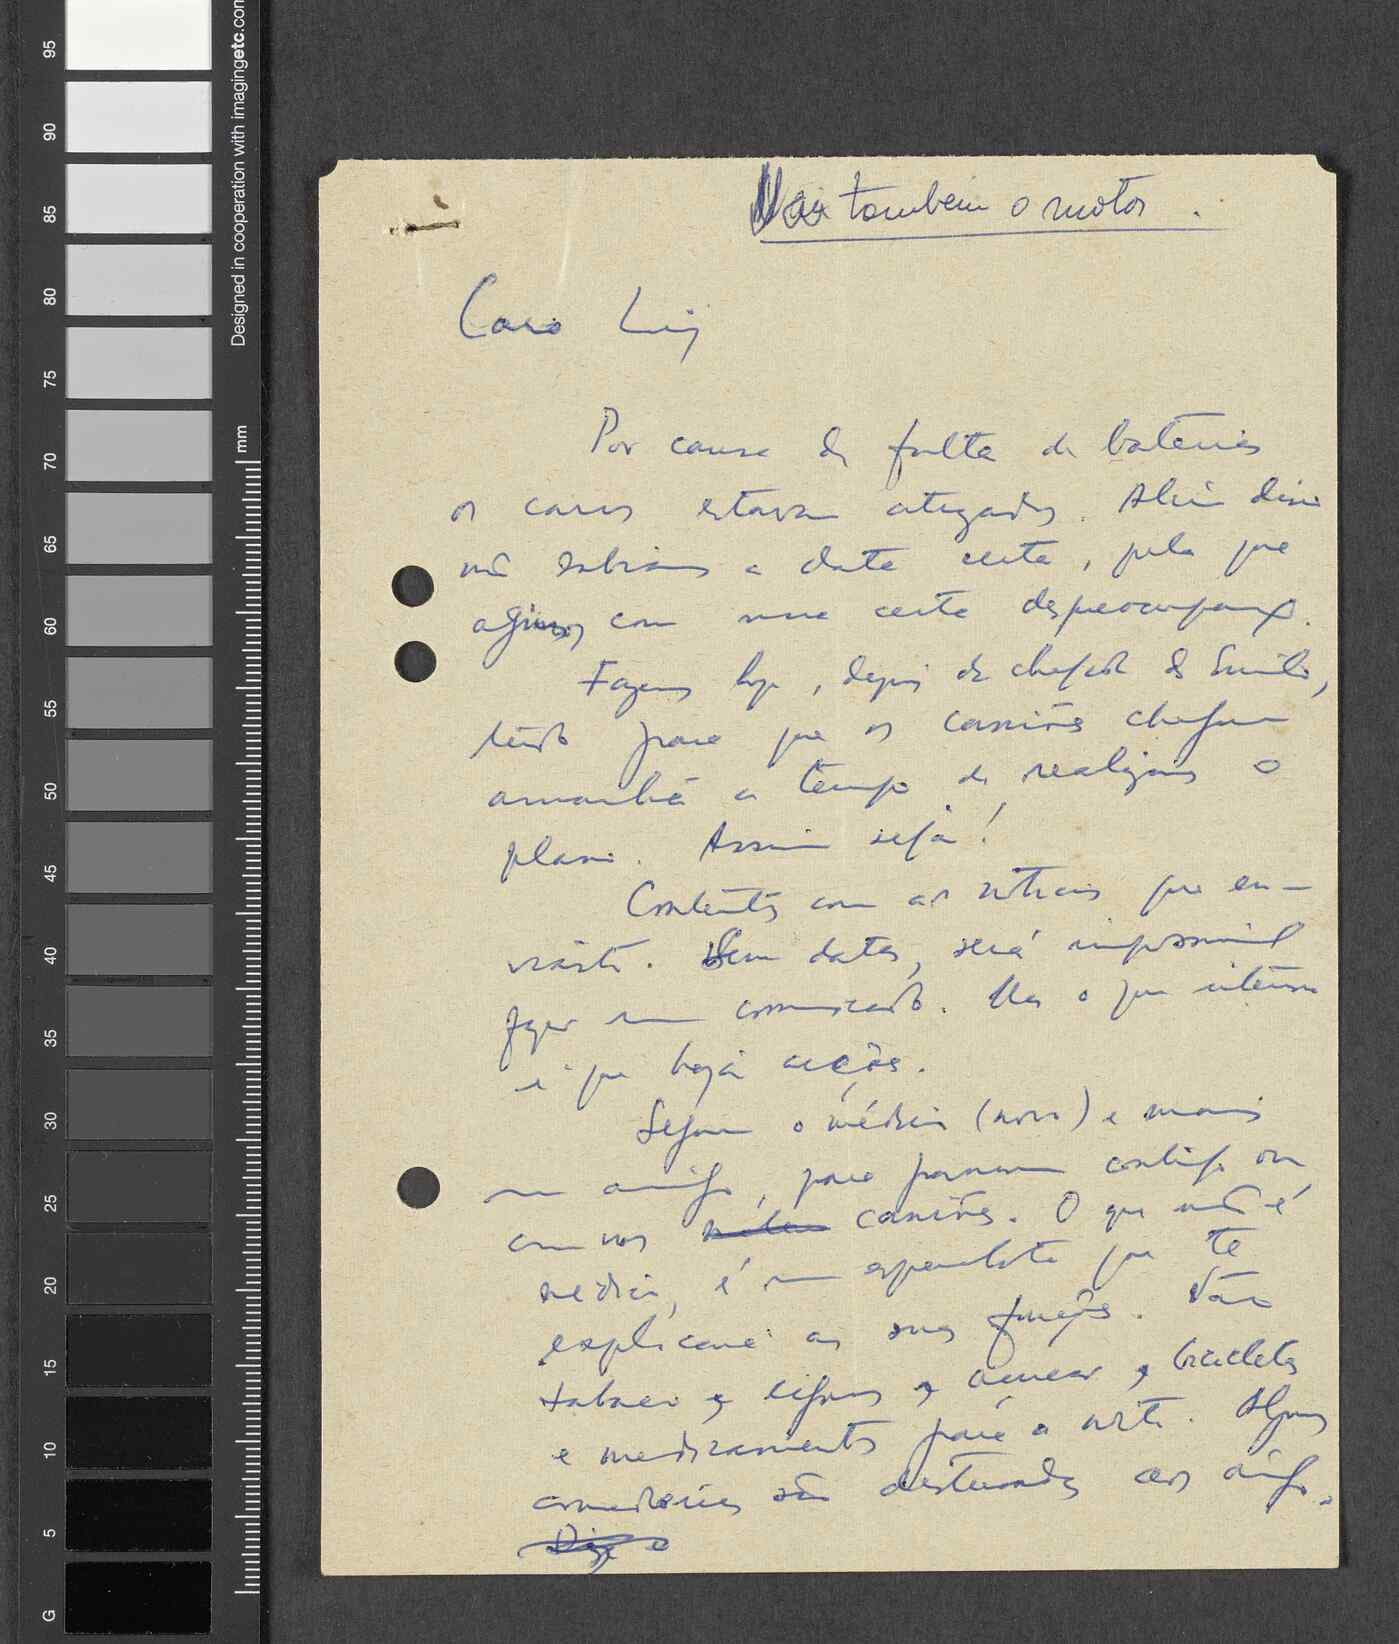 95
90
85
80
75
70
65
60
55
50
45
40
35
30
25
20
15
10
5
G
Designed in cooperation with imagingetc.com
mm
Vai também o motor.
Caro Luís
Por causa da falta de baterias
os carros estavam atrasados. Além disso
não sabíamos a data certa, pelo que
agimos com uma certa despreocupação.
Fazemos hoje, depois da chegada do Emílio,
tudo para que os camiões cheguem
amanhã a tempo de realizarmos o
plano. Assim seja!
Contentes com as notícias que en-
viaste. Sem datas, será impossível
fazer um comunicado. Mas o que interessa
é que haja acções.
Seguem o médico (novo) e mais
um amigo, para passarem contigo ou
com os camiões. O que não é
médico, é um especialista que te
explicará as suas funções. Vão
tabaco, cigarros, açucar, bicicletas
e medicamentos para o norte. Alguns
comestíveis são destinados aos amigos.
Diz o